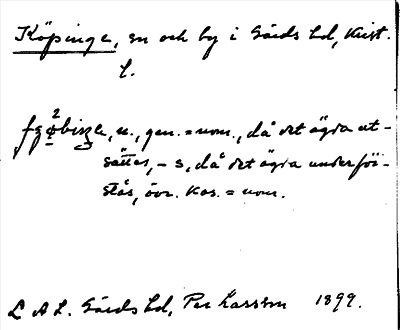 Köpinge, sn och by i Gärds hd, Krist.
L.
n., gen. = nom., då det ägda ut-
sättes, – s, då det ägda underför-
stås, övr. kas. = nom.
L A L. Gärds hd, Per Larsson 1899.